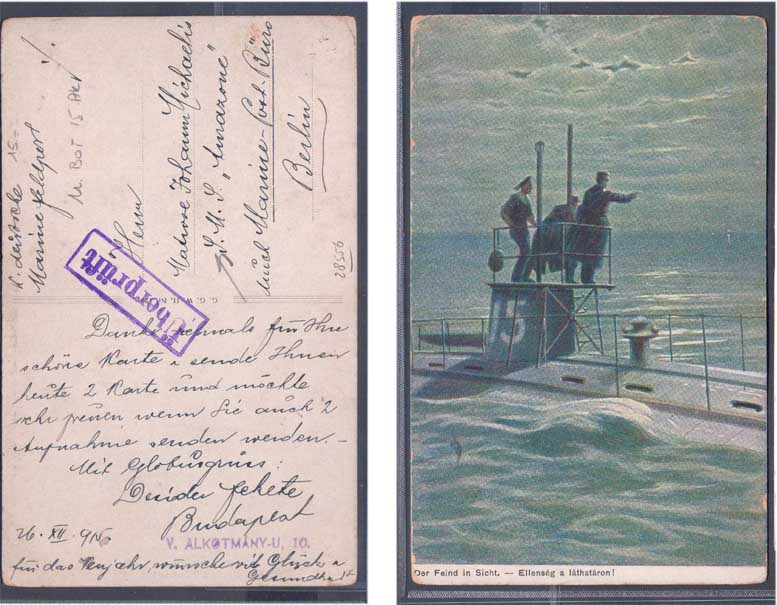 K. deutsche 15-
Marine feldpost
M. BOT 15 Akr
Herrn
Matrose Johann Michaelis
S. M. S. "Amazone"
durch Marine-Post-Büro
Berlin
28556
Überprüft
G. G. W. II. N
Danke für Ihre
schöne Karte u sende Ihnen
heute 2 Karte und möchte
sehr freuen wenn Sie auch 2
Aufnahme senden werden. -
Mit Globusgruss:
Desider Fekete
Budapest
V. ALKOTMÁNY-U. 10.
26. XII 915
für das Neujahr wünsche viel Glück u
Gesundheit
Der Feind in Sicht. — Ellenség a láthatáron!